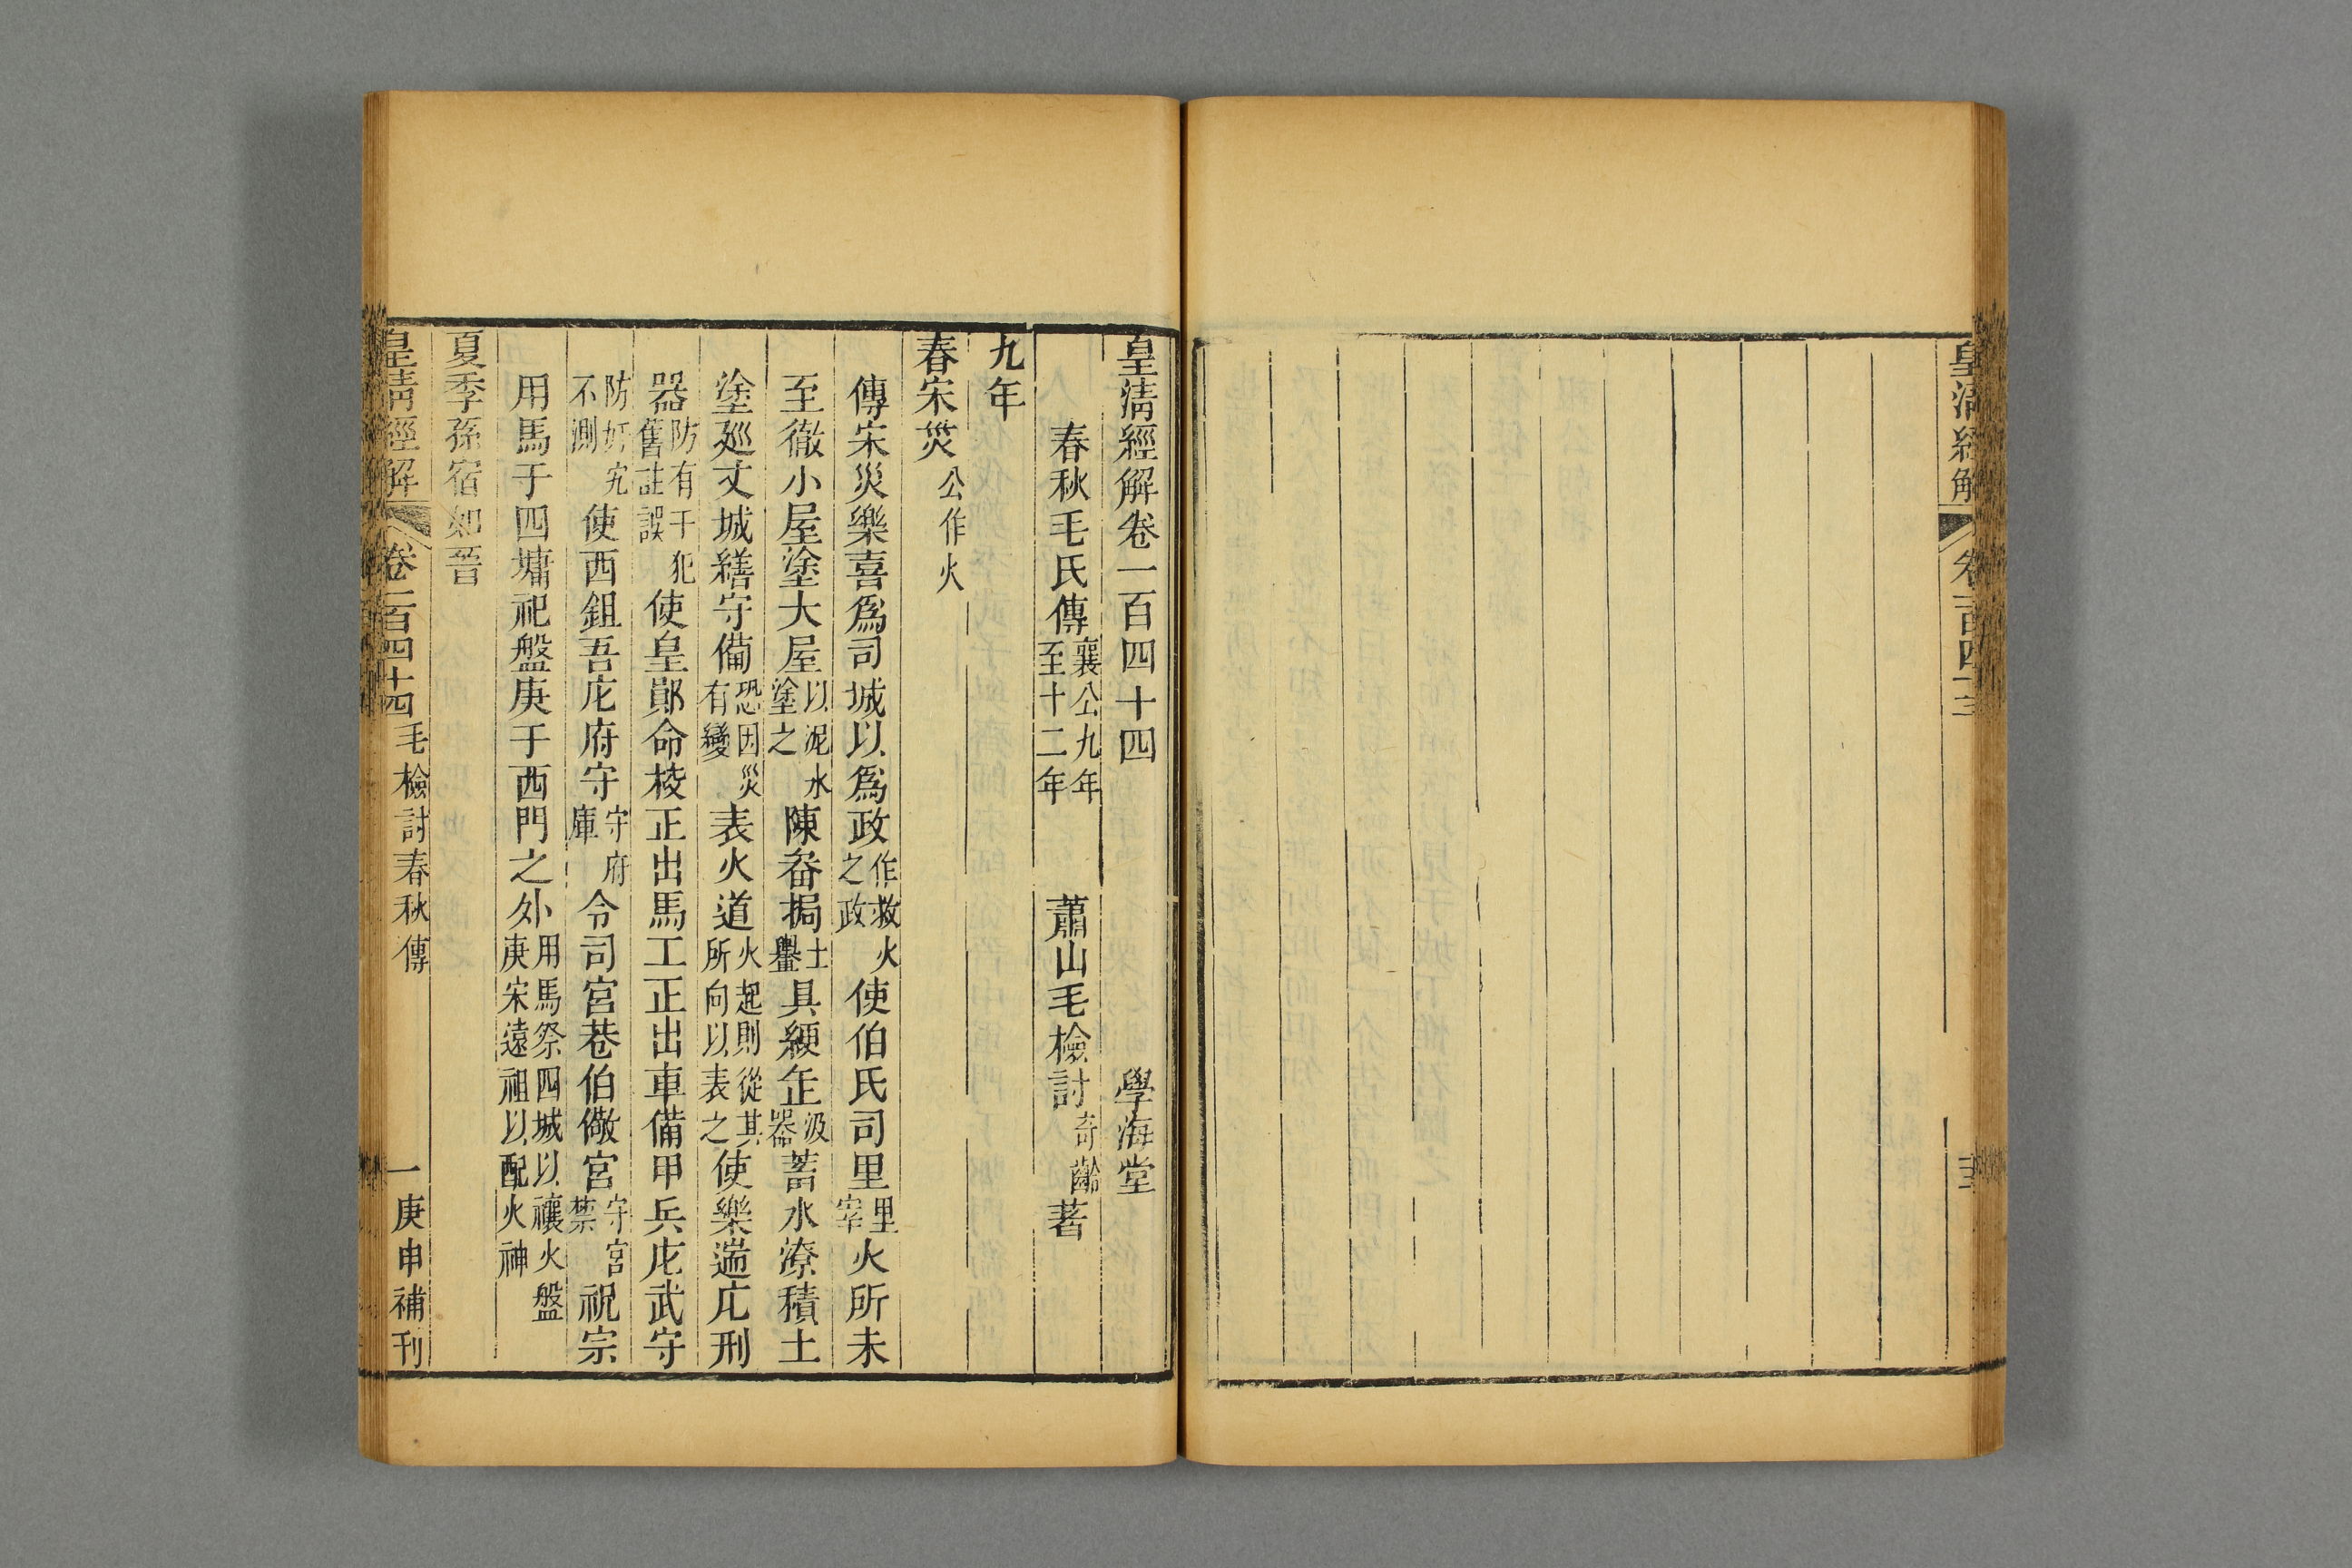 皇清經解
卷一百四十三
皇清經解卷一百四十四
學海堂
春秋毛氏傳襄公九年至十二年
蕭山毛檢討奇齡著
九年
春宋災公作火
傳宋災樂喜爲司城以爲政作救火之政使伯氏司里里宰火所未
至徹小屋塗大屋以泥水塗之陳畚挶土轝具綆缶汲器蓄水潦積土
塗廵丈城繕守備恐因災有變表火道火起則從其所向以表之使樂遄庀刑
器防有干犯舊註誤使皇鄖命校正出馬工正出車備甲兵庀武守
防奸宄不測使西鉏吾庀府守守府庫令司宮巷伯儆宮守宮禁祝宗
用馬于四墉祀盤庚于西門之外用馬祭四城以禳火盤庚宋遠祖以配火神
夏季孫宿如晉
皇清經解
卷一百四十四
毛檢討春秋傳
一
庚申補刊